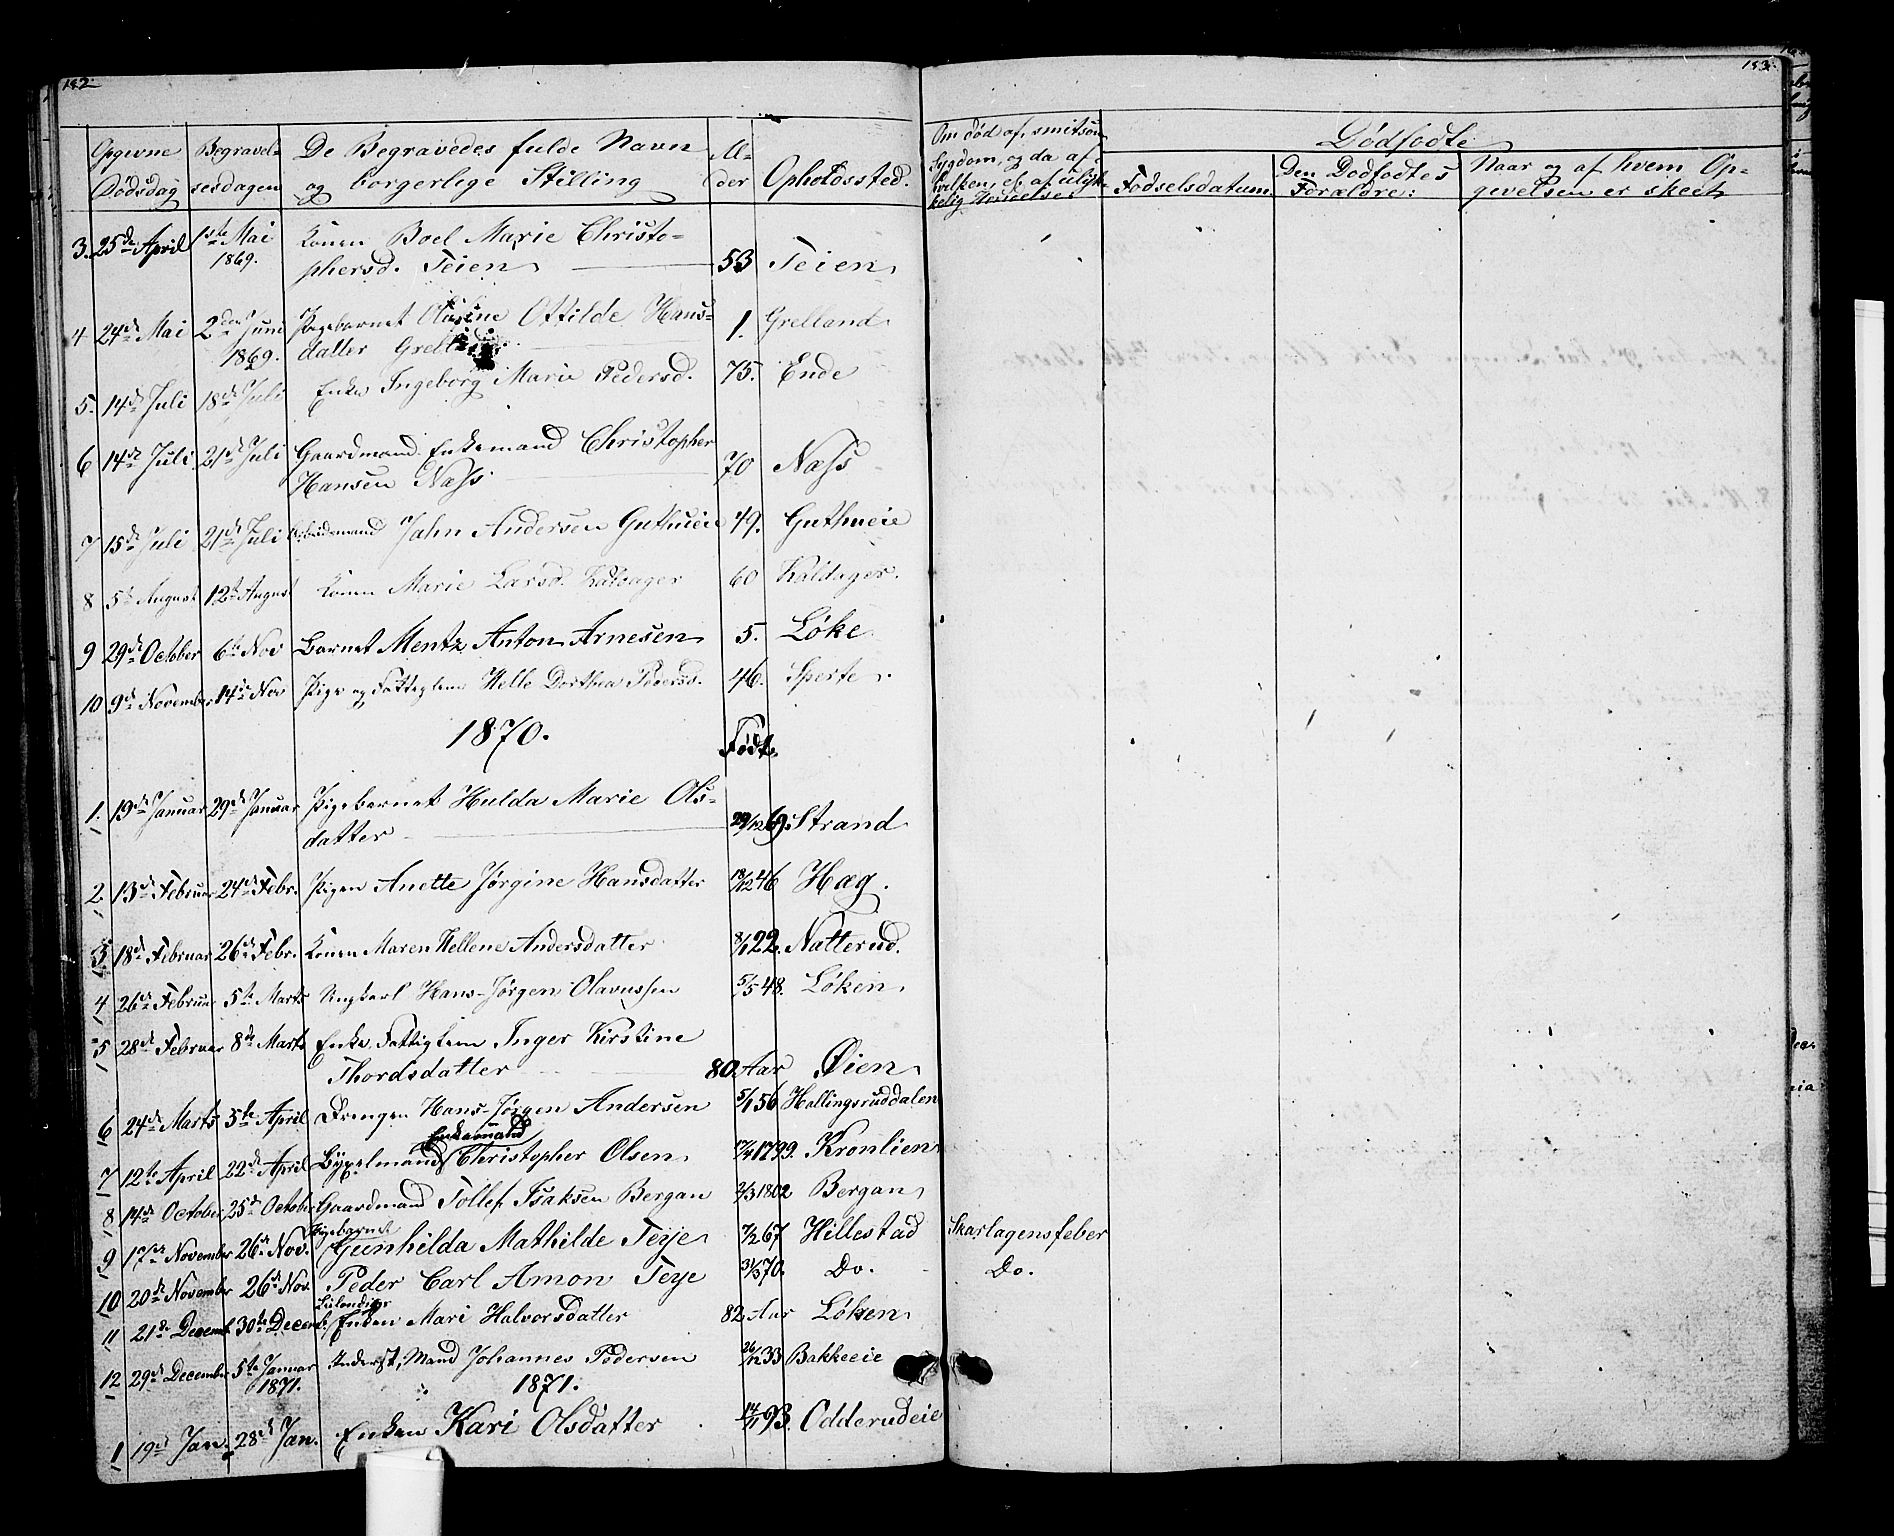 182
Opgivne Dødsdag
Begravelsesdagen
De Begravedes fulde Navn og borgerlige Stilling
Alder
Opholdssted.
3. 25de April 1ste Mai 1869. Konen Boel Marie Christo-
phersd. Teien 53 Teien
4 24de Mai 2den Juni 1869. Pigebarnet Olusine Ottilde Hans-
datter Grelland 1. Grelland
5. 14de Juli 18de Juli Enke Ingeborg Marie Pedersd. 75. Ende
6 14de Juli 21de Juli Gaardmand Enkemand Christopher
Hansen Næss 70 Næss
7 15de Juli 21de Juli Arbeidsmand Jahn Andersen Guthueie 49. Guthueie
8 5te August 12te August Konen Marie Larsd. Kaldager 60 Kaldager.
9 29de October 6te Nov Barnet Mentz Anton Arnesen 5. Løke
10 9de November 14de Nov Pige og Fattiglem Helle Dorthea Pedersd. 46. Sperte
1870. Født.
1. 19de Januar 29de Januar Pigebarnet Hulda Marie Ols-
datter 29/12 69. Strand
2. 13de Februar 24de Febr. Pigen Anette Jørgine Hansdatter 18/12 46 Hag.
3 18de Februar 26de Febr. Konen Maren Hellene Andersdatter 8/1 22. Natterud.
4 26de Februar 5te Marts Ungkarl Hans-Jørgen Olavussen 5/5 48. Løken
5 28de Februar 8de Marts Enke Fattiglem Inger Kirstine
Thordsdatter 80 Aar Øien
6 24de Marts 5te April Drengen Hans-Jørgen Andersen 5/1 56 Hallingsruddalen
Enkemand
7 12te April 22de April Bygselmand Christopher Olsen 17/4 1799. Kronlien
8 14de October 25de October Gaardmand Tollef Isaksen Bergan 2/3 1802 Bergan
Pigebarnet
9 17de November 26de Nov. Gunhilda Mathilde Teye 7/2 67 Hillestad Skarlagensfeber
10 20de November 26de Nov. Peder Carl Amon Teye 31/3 70. Do. Do.
11 21de Decemb 30te Decemb. Enken Mari Halvorsdatter 82 Aar Løken
12 29de December 5te Januar 1871. Inderst, Mand Johannes Pedersen 26/12 33 Bakkeeie
1871.
1 19de Jan. 28de Jan. Enken Kari Olsdatter 93. Odderudeie
183
Om død af smitsom Sygdom, og da af hvilken, el. af ulyk-
kelig Hendelse.
Dødfødte
Fødselsdatum
Den Dødfødtes Forældre:
Naar og af hvem Op-
gevelsen er skeet